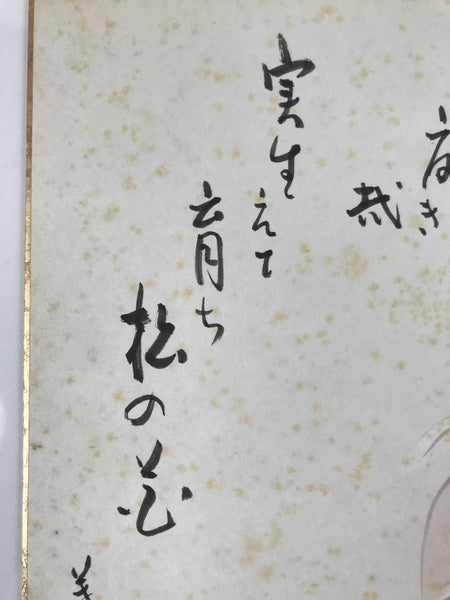 き
哉
実生えて
育ち
松の花